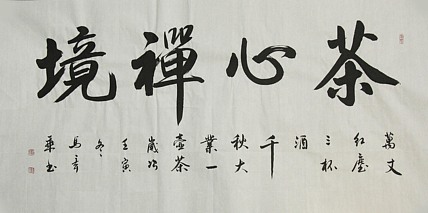 茶心禪境
萬丈
紅塵
三杯
酒
千
秋大
業一
壺茶
歲次
壬寅
冬
馬
書